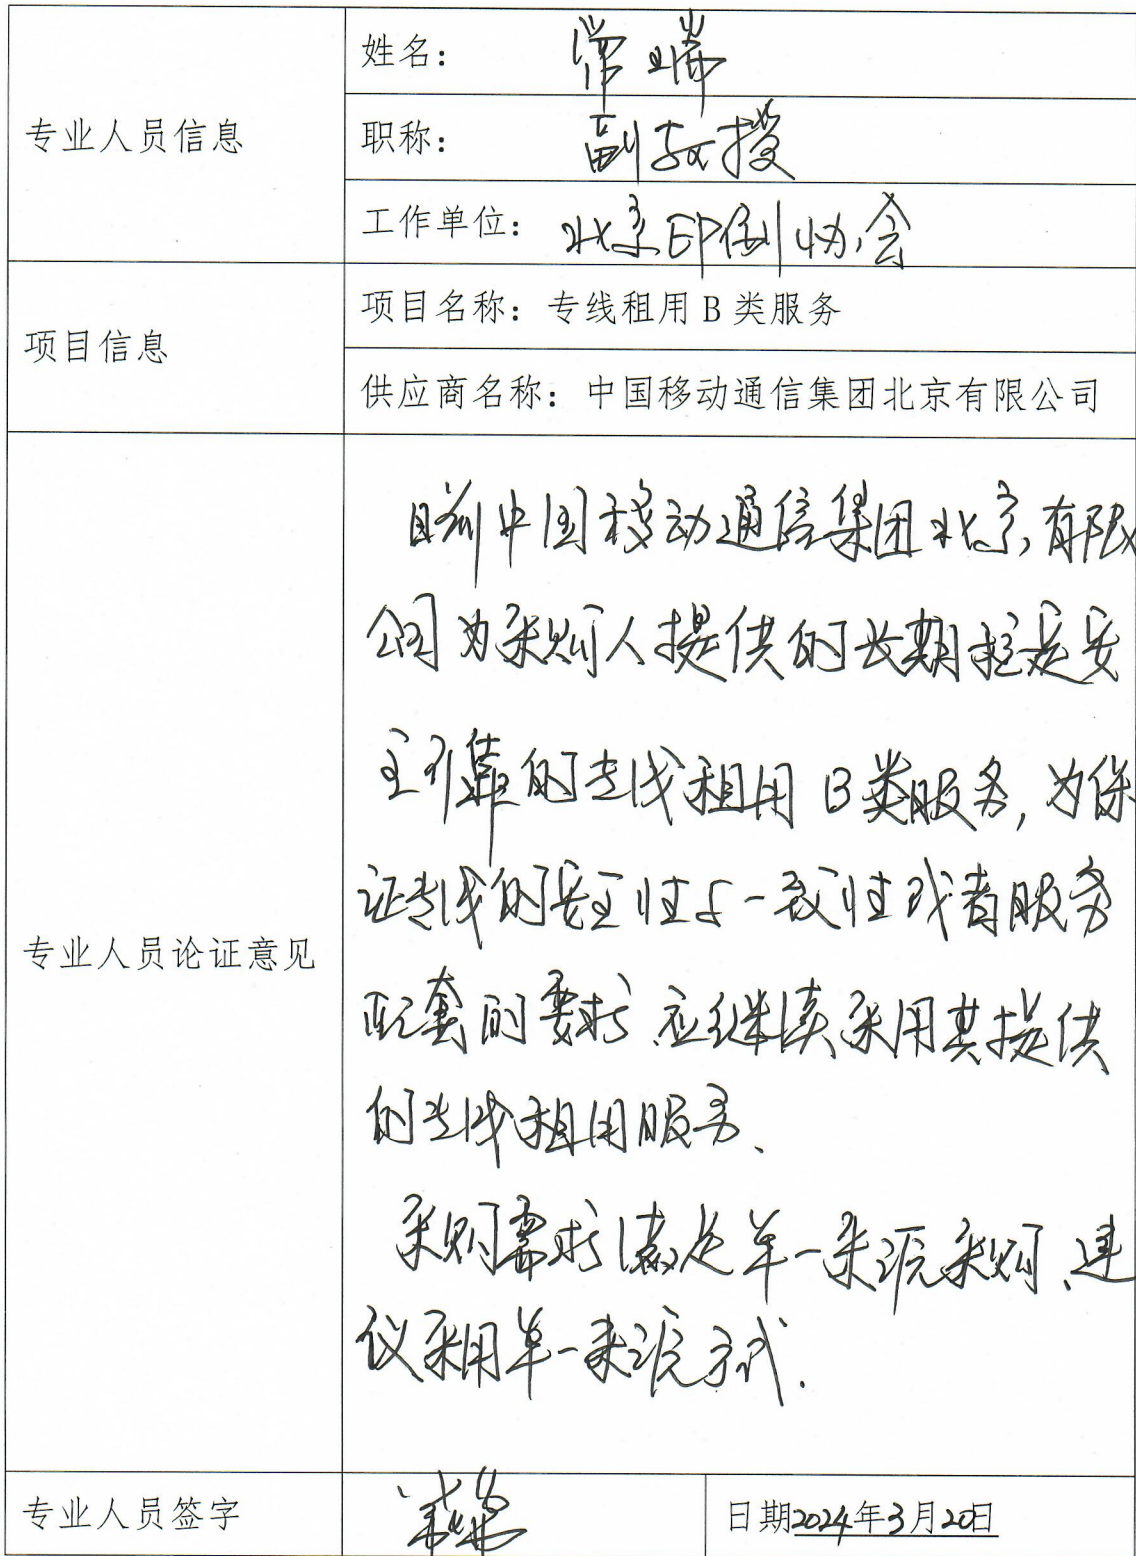 专业人员信息
姓名： 常瑞
职称： 副教授
工作单位： 北京印刷协会
项目信息
项目名称：专线租用 B 类服务
供应商名称：中国移动通信集团北京有限公司
专业人员论证意见
目前中国移动通信集团北京有限
公司为采购人提供的长期稳定安
全可靠的专线租用 B类服务,为保
证专线的安全性与一致性或者服务
配套的要求,应继续采用其提供
的专线租用服务、
采购需求满足单一来源采购、建
议采用单一来源方式.
专业人员签字
日期2024年3月20日